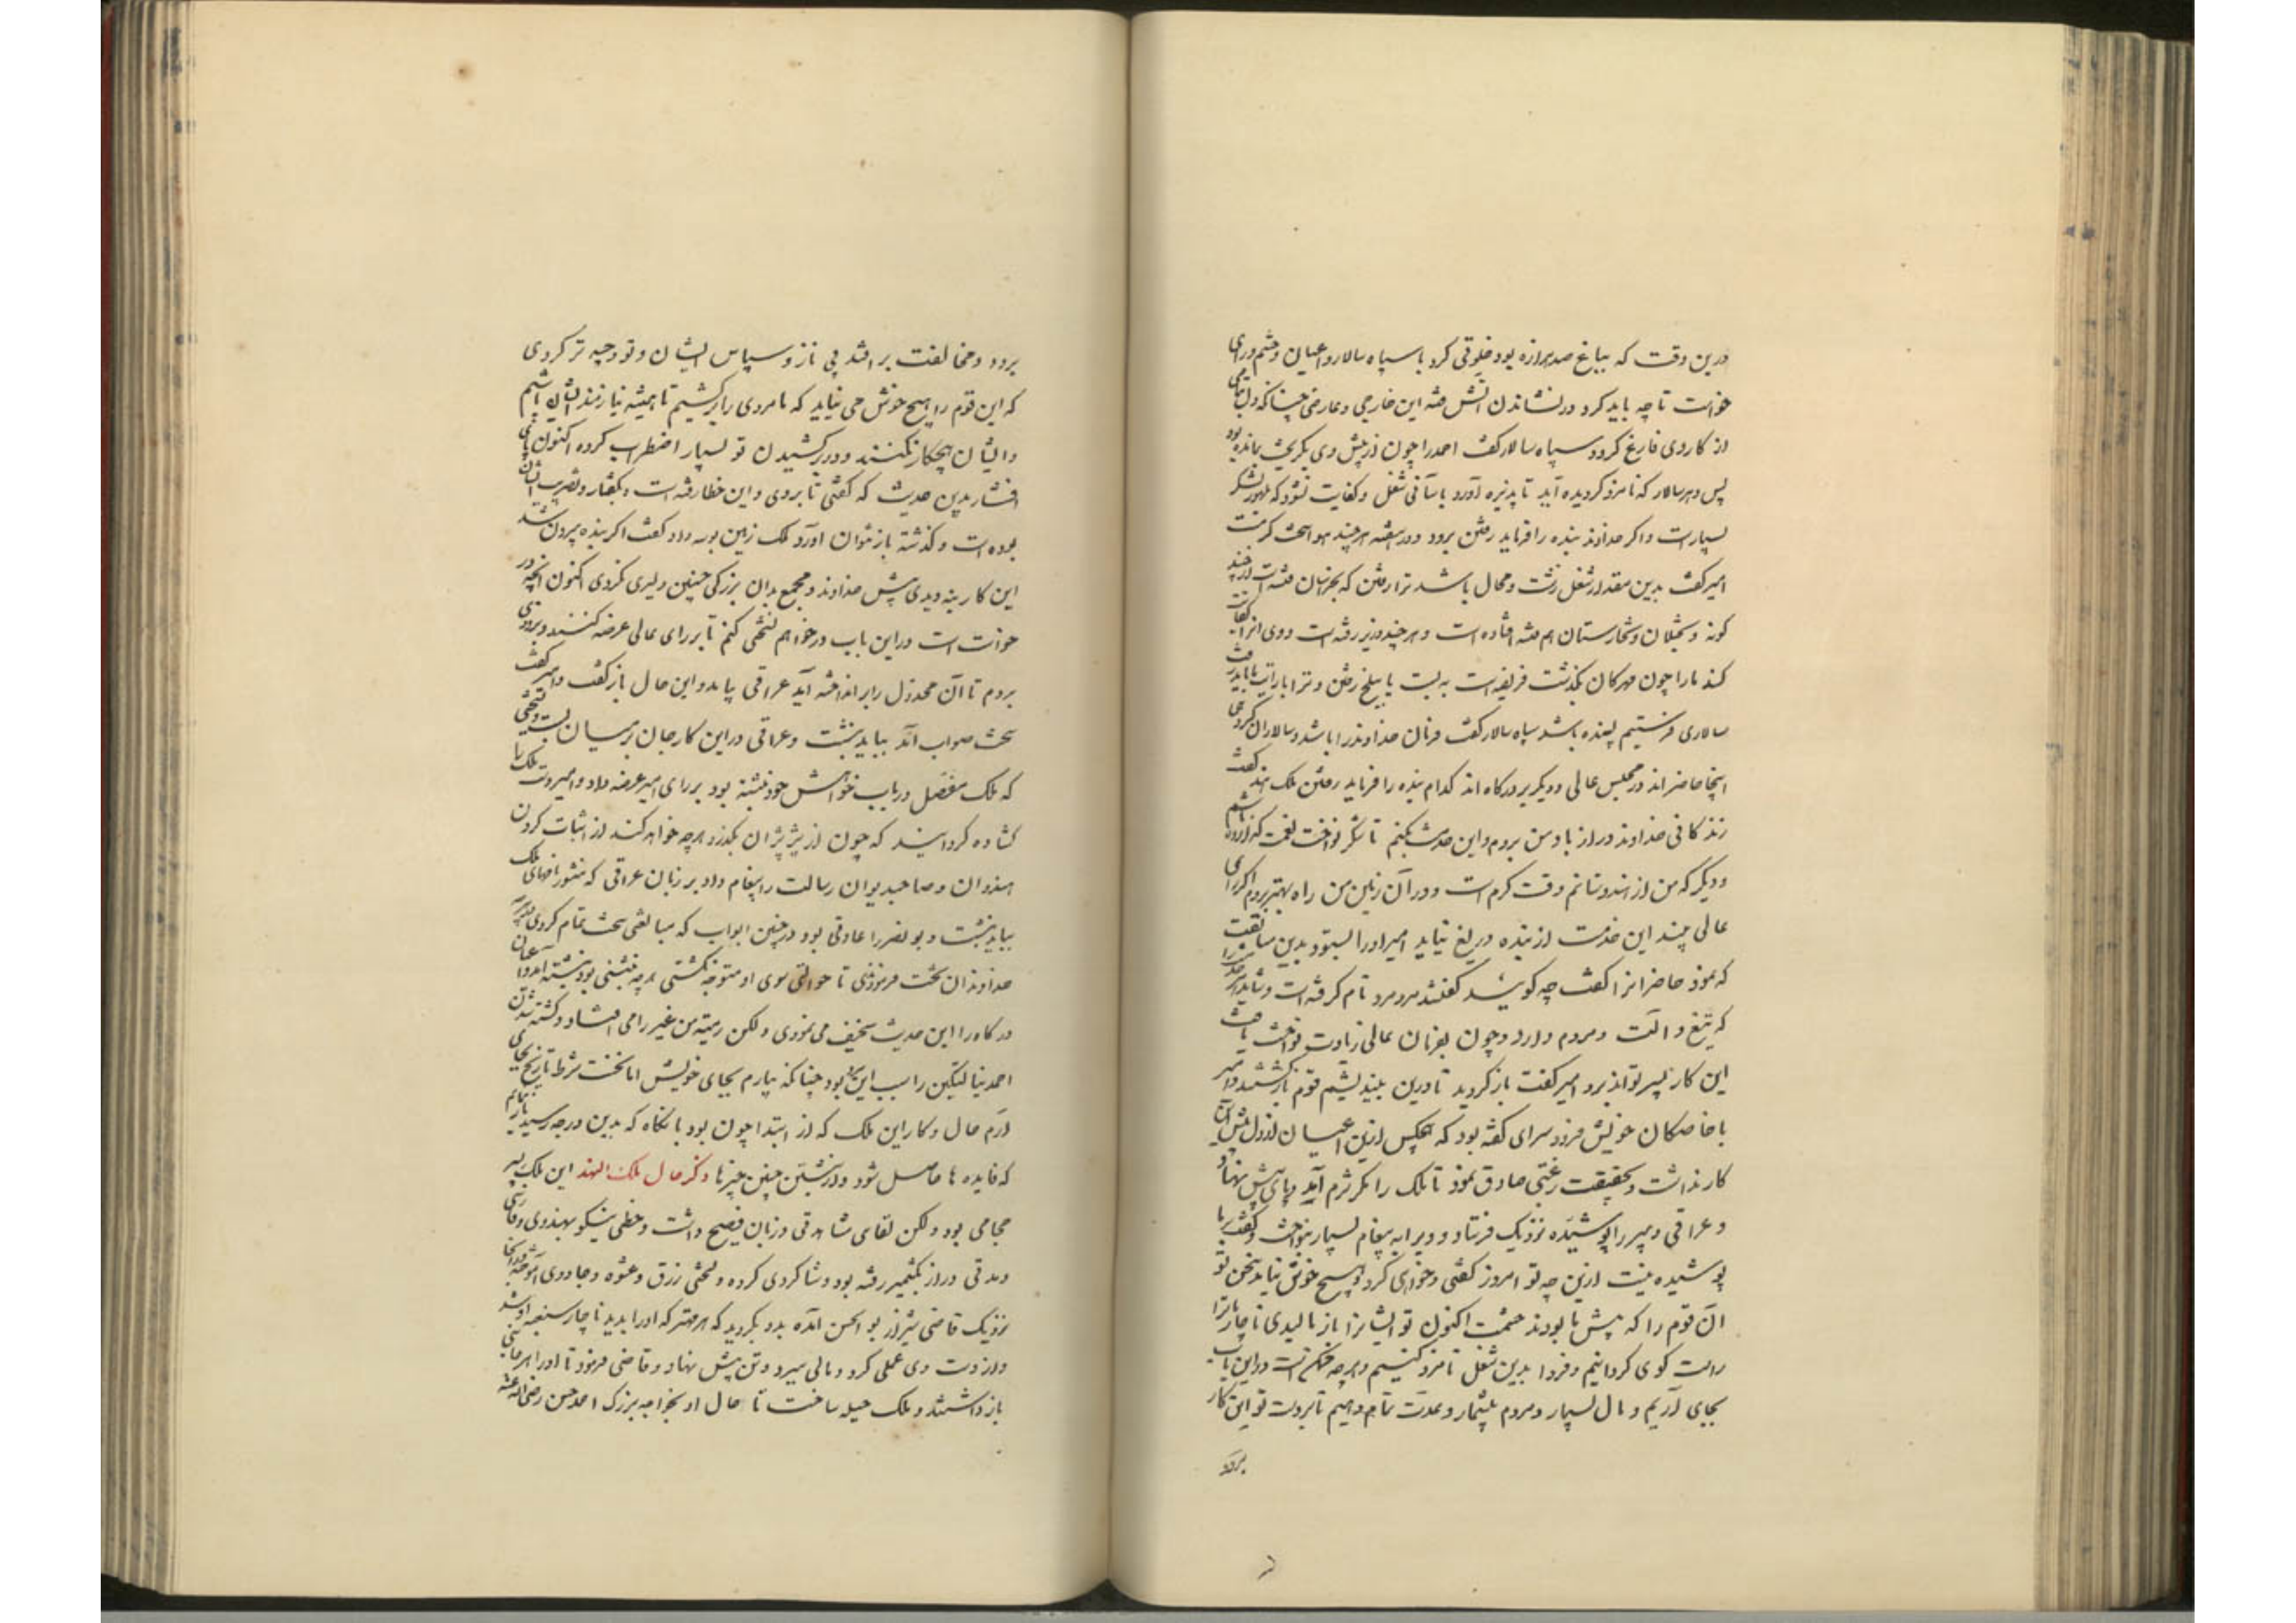 درین وقت که بباغ صدهزاره بود خلوتی کرد با سپاه سالار و اعیان و حشم و رای
خواست تا چه باید کرد در نشاندن آتش فتنه این خارجی و عارضی چنانکه دل بتمامی
از کار وی فارغ گردد سپاه سالار گفت احمد را چون از پیش وی بگریخت نمانده بود
پس و هر سالار که نامزد کرده آید تا پذیره او رود بآسانی شغل او کفایت شود که بلهور لشکر
بسیارست و اگر خداوند بنده را فرماید رفتن برود در هفته هر چند هوا سخت گرمست
امیر گفت بدین مقدار شغل زشت و محال باشد ترا رفتن که بخراسان فتنه است از چند
گونه و بختلان و تخارستان هم فتنه افتاده است و هر چند وزیر رفته است و وی آنرا کفایت
کند ما را چون مهرگان بگذشت فریضه است به بست یا ببلخ رفتن و ترا با رایت ما باید رفت
سالاری فرستیم بسنده باشد سپاه سالار گفت فرمان خداوند را باشد و سالاران گروهی
اینجا حاضراند در مجلس عالی و دیگر بر درگاه اند کدام بنده را فرماید رفتن تلک هندو گفت
زندگانی خداوند دراز باد من بروم و این خدمت بکنم تا شکر نواخت و نعمت گزارده باشم
و دیگر که من از هندوستانم و وقت گرم است و در آن زمین من راه بهتر برم اگر رای
عالی بیند این خدمت از بنده دریغ نیاید امیر او را بستود بدین مسابقت
که نمود حاضرانرا گفت چه گویید گفتند مرد نام گرفته است و شاید هر خدمت را
که تیغ و آلت و مردم دارد و چون بفرمان عالی زیادت نواخت یافت
این کار بسر تواند برد امیر گفت بازگردید تا درین بیندیشم قوم بازگشتند و امیر
با خاصگان خویش فرود سرای گفته بود که هیچکس ازین اعیان از دل پیش این
کار نداشت و بحقیقت رغبتی صادق ننمود تا تلک را مگر شرم آمد و پای پیش نهاد
و عراقی دبیر را پوشیده نزدیک فرستاد و ویرا به پیغام بسیار بنواخت و گفت بر ما
پوشیده نیست ازین چه تو امروز گفتی و خواهی کرد و هیچ خوش نیامد سخن تو
آن قوم را که پیش ما بودند حشمت اکنون تو ایشانرا باز مالیدی ناچار ما ترا
راست گوی گردانیم و فردا بدین شغل نامزد کنیم و هر چه ممکن است درین باب
بجای آریم و مال بسیار و مردم بیشمار و عدت تمام دهیم تا بر دست تو این کار
برود
برود و مخالفت برافتد بی ناز و سپاس ایشان و تو وجیه تر گردی
که این قوم را هیچ خوش می نیاید که ما مردی را برکشیم تا همیشه نیازمند ایشان باشیم
و ایشان هیچکار نکنند و در برکشیدن تو بسیار اضطراب کرده اکنون پای
افشار بدین حدیث که گفتی تا بروی و این خطا رفته است و بگفتار و تضریب ایشان
بوده است و گذشته باز نتوان آورد تلک زمین بوسه داد و گفت اگر بنده بیرون شد
این کار نه دیدی پیش خداوند و مجمع بدان بزرگی چنین دلیری نکردی اکنون آنچه در
خواست است در این باب درخواهم نسختی کنم تا بر رای عالی عرضه کنند و بزودی
بروم تا آن مخذول را برانداخته آید عراقی بیامد و این حال باز گفت و امیر گفت
سخت صواب آمد بباید نبشت و عراقی درین کار جان بر میان بست و نسختی
که تلک مفصل در باب خواهش خود نبشته بود بر رای امیر عرضه داد و امیر دست تلک را
گشاده گردانید که چون از پژپژان بگذرد هر چه خواهد کند از اثبات کردن
هندوان و صاحبدیوان رسالت را پیغام داد بر زبان عراقی که منشور نامهای تلک
بباید نبشت و بونصر را عادتی بود در چنین ابواب که مبالغتی سخت تمام کردی
خداوندان تخت فرمودندی تا حوالتی سوی او متوجه نگشتی هر چه نبشتنی بود نبشته آمد و اعیان
درگاه را این حدیث سخیف می نمودی و لکن رمیة من غیر رامی افتاد و کشته شدن
احمد ینالتگین را سبب این مرد بود چنانکه بیارم بجای خویش اما نخست شرط تاریخ بجای
آرم حال و کار این تلک که از ابتدا چون بود تا آنگاه که بدین درجه رسید باز نمایم
که فایده ها حاصل شود در نبشتن چنین چیزها ذکر حال تلک الهند این تلک پسر
حجامی بود و لکن لقای مشاهدتی و زبان فصیح داشت و خطی نیکو بهندوی و فارسی
و مدتی دراز بکشمیر رفته بود و شاگردی کرده و لختی زرق و عشوه و جادوی آموخته و از آنجا
نزدیک قاضی شیراز بوالحسن آمده بدو بگروید که هر مهتر که او را بدید ناچار سفته او شد
و از دست وی عملی کرد و مالی ببرد و تن پیش نهاد و قاضی فرمود تا او را هر جانبی
باز داشتند و تلک حیله ساخت تا حال او بخواجه بزرگ احمد حسن رضی الله عنه